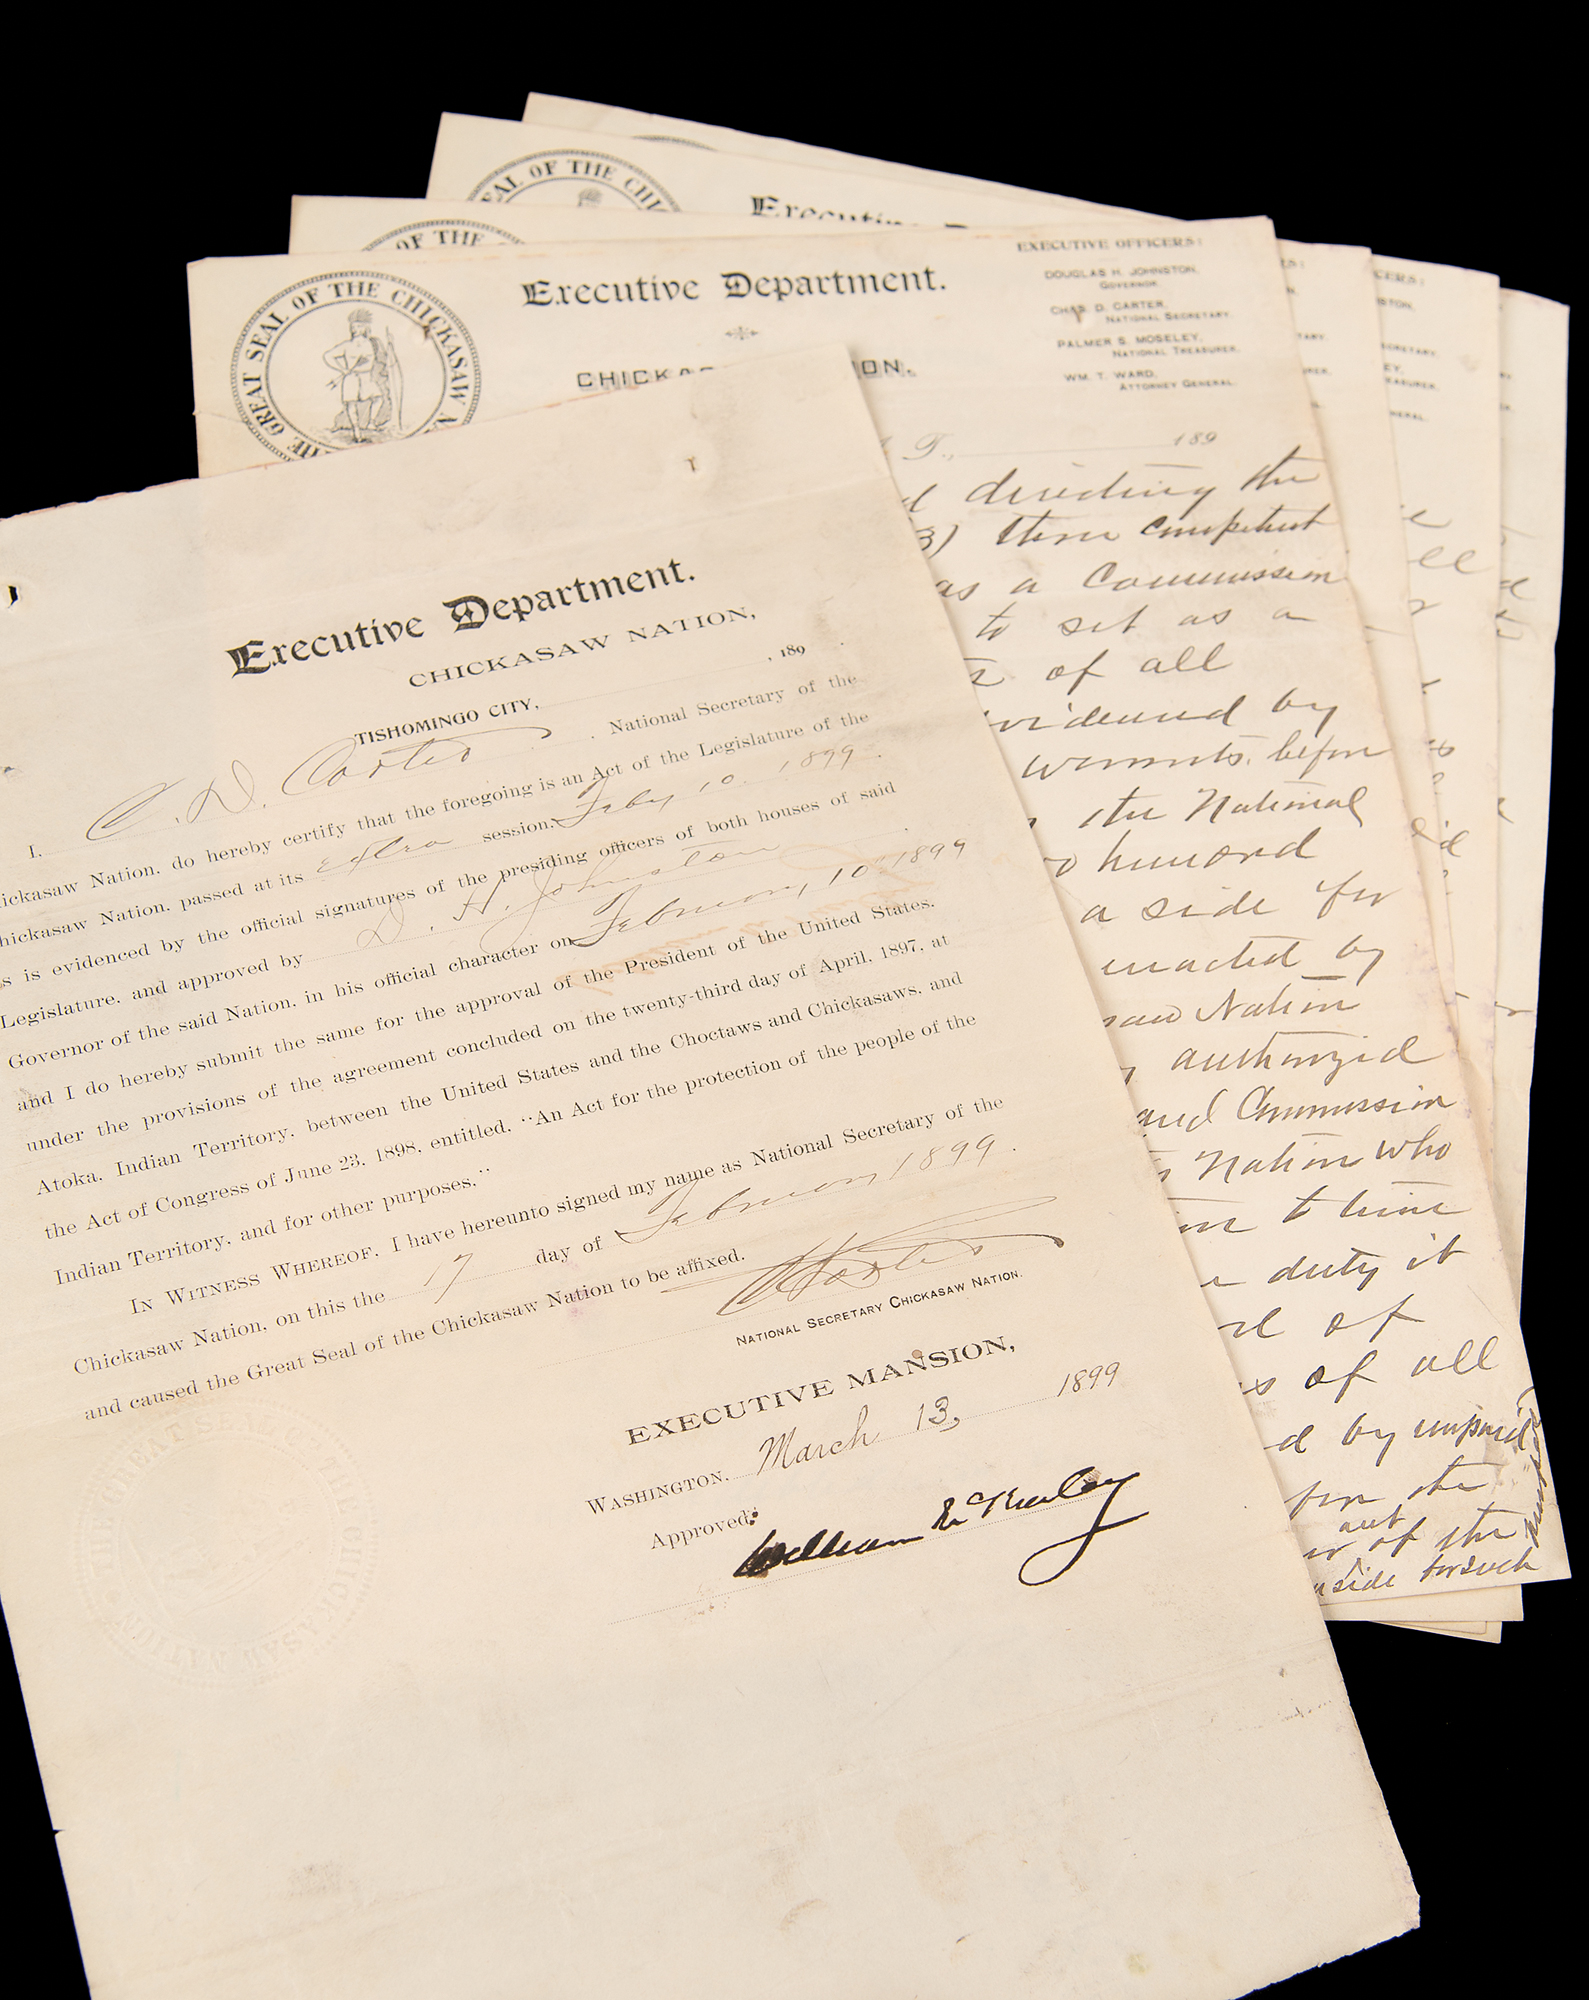 SEAL OF THE CHI
Executive
OF THE
THE GREAT SEAL OF THE CHICKASAW N
Executive Department.
CHICKAS ION,
EXECUTIVE OFFICERS:
DOUGLAS H. JOHNSTON,
GOVERNOR.
CHAS. D. CARTER,
NATIONAL SECRETARY.
PALMER S. MOSELEY,
NATIONAL TREASURER.
WM. T. WARD,
ATTORNEY GENERAL.
T., 189
directing the
3) three competent
as a Commission
to set as a
of all
videnced by
warrants, before
the National
hunord
a side for
enacted by
saw Nation
authorized
and Commission
Nation who
to time
duty it
of
of all
d by unpaid
for the
out
of the
side for such
Executive Department.
CHICKASAW NATION,
TISHOMINGO CITY, , 189
I, C. D. Carter , National Secretary of the
hickasaw Nation, do hereby certify that the foregoing is an Act of the Legislature of the
hickasaw Nation, passed at its extra session, Feby 10, 1899.
s is evidenced by the official signatures of the presiding officers of both houses of said
Legislature, and approved by D. H. Johnston
Governor of the said Nation, in his official character on February 10" 1899
and I do hereby submit the same for the approval of the President of the United States,
under the provisions of the agreement concluded on the twenty-third day of April, 1897, at
Atoka, Indian Territory, between the United States and the Choctaws and Chickasaws, and
the Act of Congress of June 23, 1898, entitled, "An Act for the protection of the people of the
Indian Territory, and for other purposes."
IN WITNESS WHEREOF, I have hereunto signed my name as National Secretary of the
Chickasaw Nation, on this the 17 day of February 1899.
and caused the Great Seal of the Chickasaw Nation to be affixed.
C D Carter
NATIONAL SECRETARY CHICKASAW NATION.
EXECUTIVE MANSION,
WASHINGTON, March 13, 1899
Approved:
William McKinley
THE GREAT SEAL OF THE CHICKASAW NATION